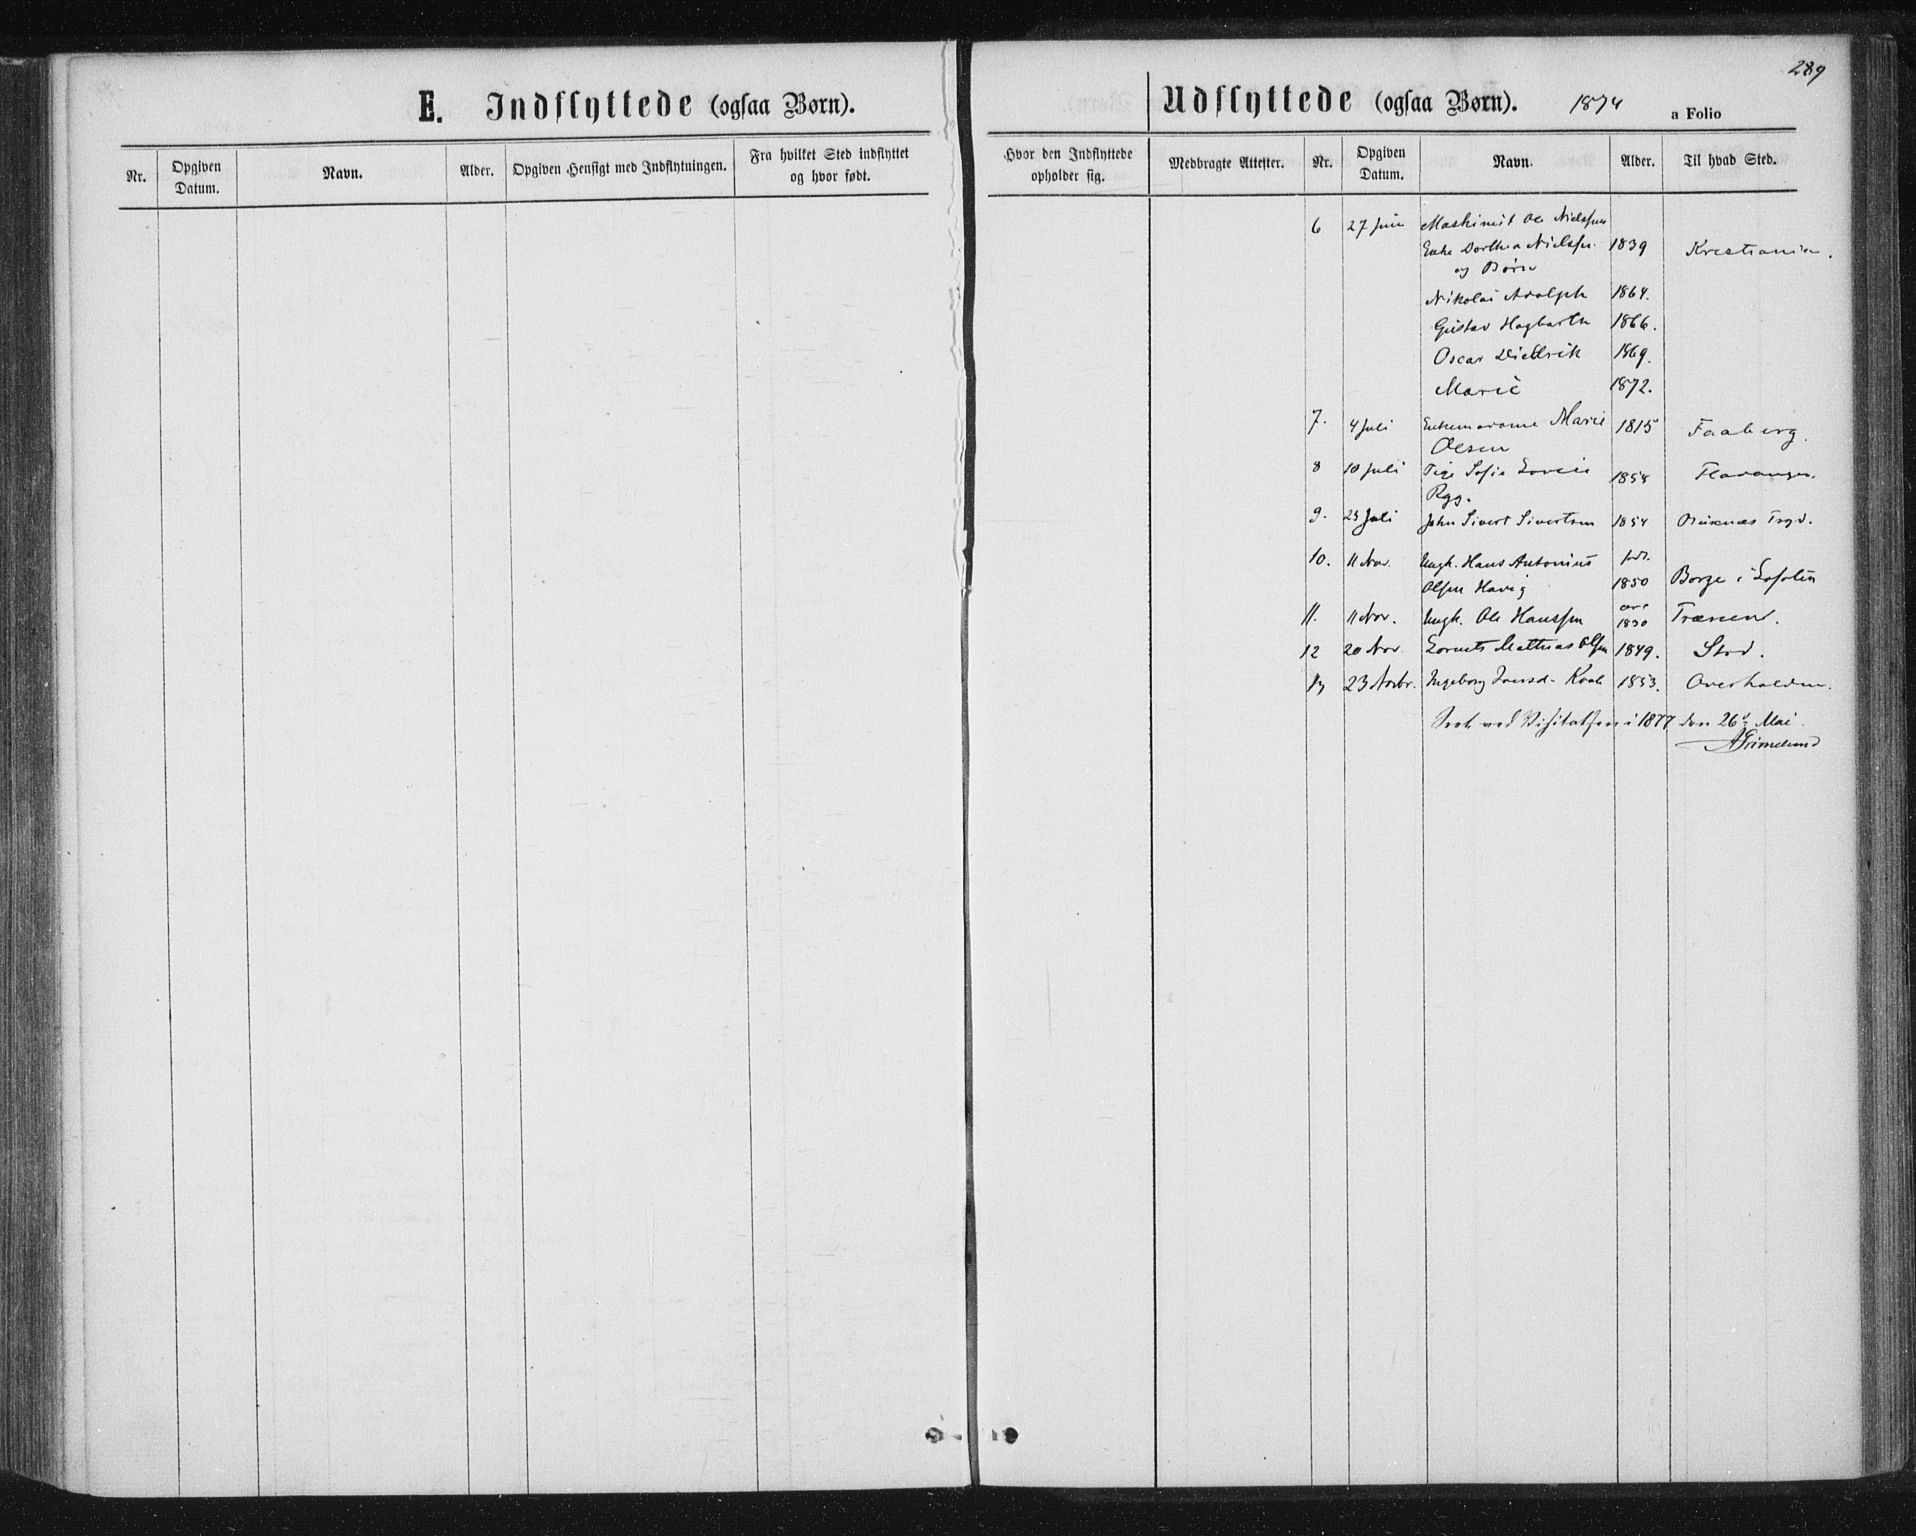 289
E. Indflyttede (ogsaa Børn).
Nr.
Opgiven Datum.
Navn.
Alder.
Opgiven Hensigt med Indflytningen.
Fra hvilket Sted indflyttet og hvor født.
Udflyttede (ogsaa Børn). 1874 a Folio
Hvor den Indflyttede opholder sig.
Medbragte Attester.
Nr.
Opgiven Datum.
Navn.
Alder.
Til hvad Sted.
6 27 Juni Maskinist Ole Nielssens
Enke Dorthea Nielssen 1839 Kristiania.
og Børn
Nikolai Adolph 1864.
Gustav Hagbarth 1866.
Oscar Diedrik 1869.
Marie 1872.
7. 4 Juli Enkemadame Marie 1815 Faaberg.
Olsen
8 10 Juli Pige Sofie 1858
9. 25 Juli John Sivert Sivertsen 1854
10. 11 Nov. Ungk. Hans Antonius
Olsen Havig 1850 Borge i Lofoten
11. 11 Nov. Ungk. Ole Hanssen 1830 Trænen.
12 20 Nov. Mathias Olsen 1849. Stod.
13 23 Novbr. Ingeborg 1853. Overhalden.
Seet ved Visitatsen i 1877 den 26d Mai.
AGrimelund